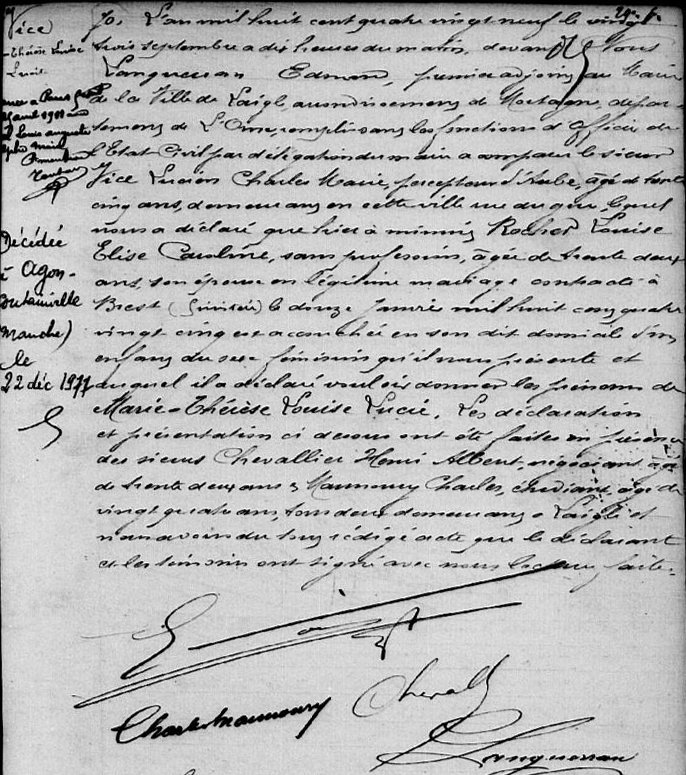 Vice
Thérèse Louise
Lucie
Décédée
à Agon-
Coutainville
(Manche)
le
22 déc 1977
L'an mil huit cent quatre vingt neuf le vingt
trois septembre a dix heures du matin, devant Nous
Edmond, premier adjoint au Maire
de la Ville de Laigle, arrondissement de Mortagne, dépar-
tement de L'Orne, remplissant les fonctions d'Officier de
l'Etat Civil par délégation du maire a comparu le sieur
Vice Lucien Charles Marie, percepteur d'Aube, âgé de trente
cinq ans, demeurant en cette ville rue du lequel
nous a déclaré que hier à minuit Rochet Louise
Elise Caroline, sans profession, âgée de trente deux
ans, son épouse en légitime mariage contracté à
Brest (Finistère) le douze Janvier mil huit cent quatre
vingt cinq est accouchée en son dit domicile d'un
enfant du sexe féminin qu'il nous présente et
auquel il a déclaré vouloir donner les prénoms de
Marie-Thérèse Louise Lucie. Les déclaration
et présentation ci dessus ont été faites en présence
des sieurs Chevallier Henri Albert, négociant âgé
de trente deux ans & Maunoury Charles, étudiant, âgé de
vingt quatre ans, tous deux demeurant à Laigle et
nous avons du tout rédigé acte que le déclarant
et les témoins ont signé avec nous lecture faite.
Charles Maunoury